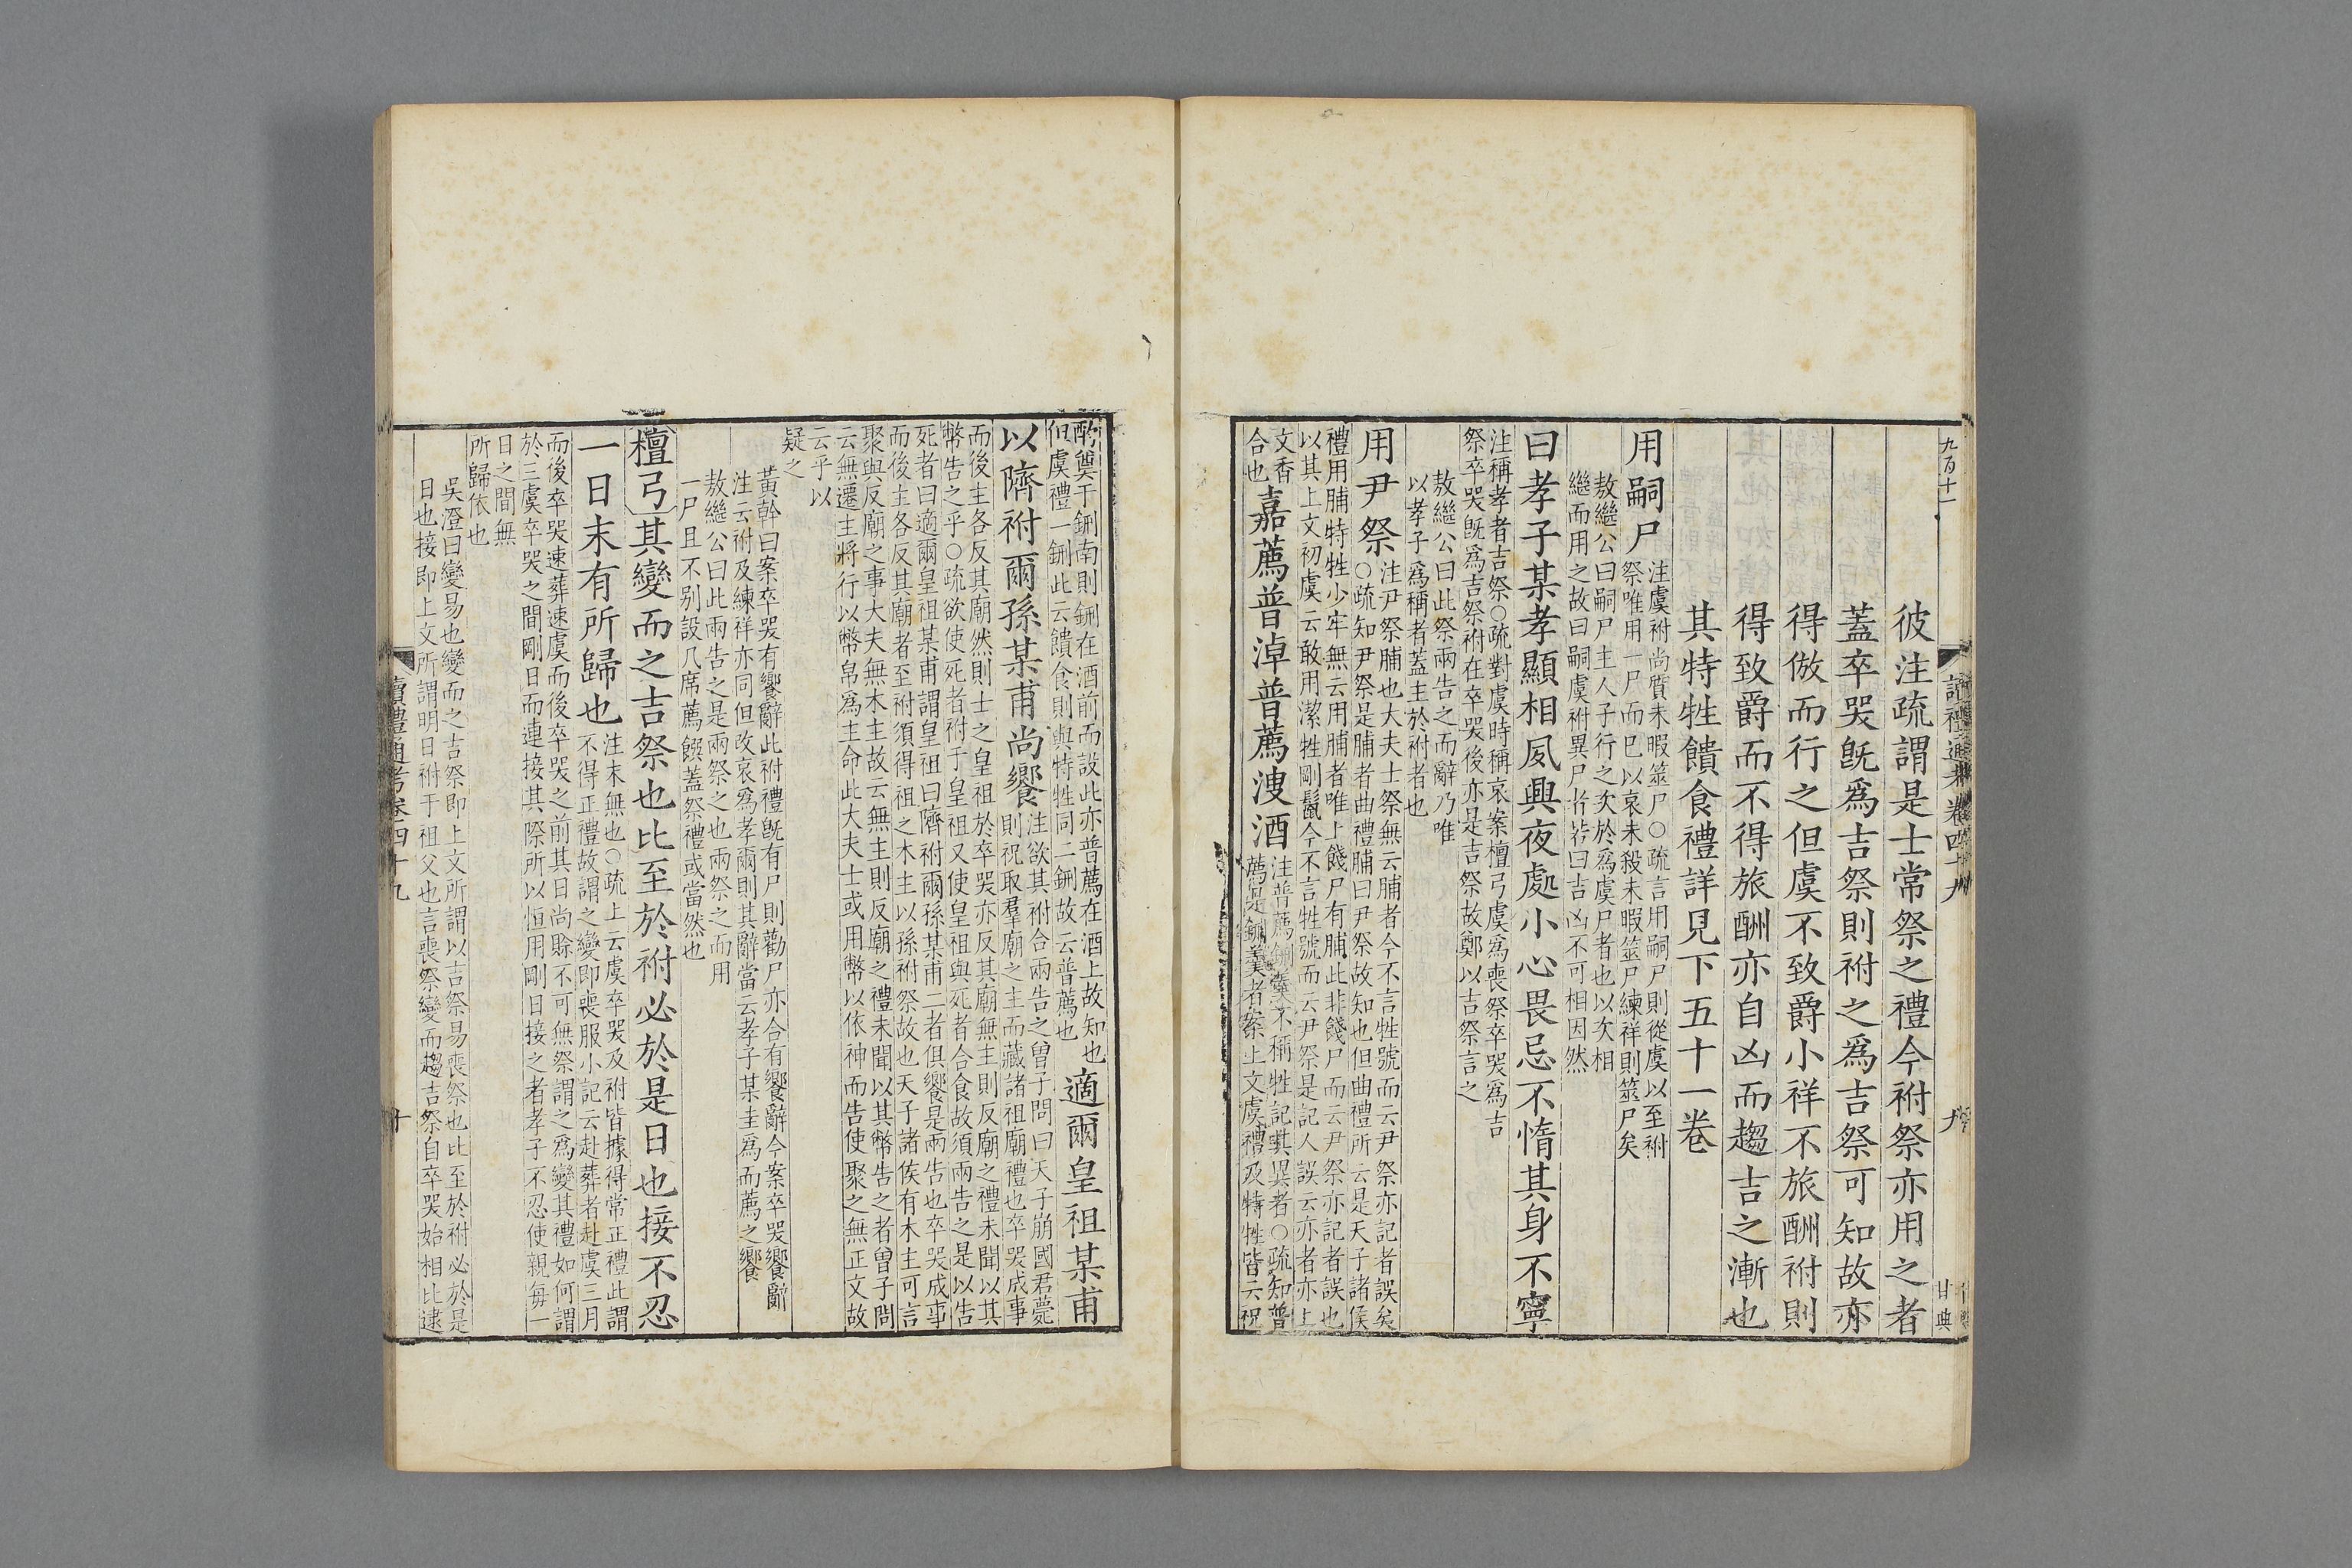 九百十一
讀禮通考卷四十九
九
甘典
彼注疏謂是士常祭之禮今祔祭亦用之者
蓋卒哭旣爲吉祭則祔之爲吉祭可知故亦
得倣而行之但虞不致爵小祥不旅酬祔則
得致爵而不得旅酬亦自凶而趨吉之漸也
其特牲饋食禮詳見下五十一卷
用嗣尸
注虞祔尚質未暇筮尸○疏言用嗣尸則從虞以至祔
祭唯用一尸而巳以哀未殺未暇筮尸練祥則筮尸矣
敖繼公曰嗣尸主人子行之次於爲虞尸者也以次相
繼而用之故曰嗣虞祔異尸者曰吉凶不可相因然
曰孝子某孝顯相夙興夜處小心畏忌不惰其身不寧
注稱孝者吉祭○疏對虞時稱哀案檀弓虞爲喪祭卒哭爲吉
祭卒哭旣爲吉祭祔在卒哭後亦是吉祭故鄭以吉祭言之
敖繼公曰此祭兩告之而辭乃唯
以孝子爲稱者蓋主於祔者也
用尹祭
注尹祭脯也大夫士祭無云脯者今不言牲號而云尹祭亦記者誤矣
○疏知尹祭是脯者曲禮脯曰尹祭故知也但曲禮所云是天子諸侯
禮用脯特牲少牢無云用脯者唯上餞尸有脯此非餞尸而云尹祭亦記者誤也
以其上文初虞云敢用潔牲剛鬣今不言牲號而云尹祭是記人誤云亦者亦上
文香
合也
嘉薦普淖普薦溲酒
注普薦鉶羹不稱牲記其異者○疏知普
薦是鉶羹者案上文虞禮及特牲皆云祝
酌奠于鉶南則鉶在酒前而設此亦普薦在酒上故知也
但虞禮一鉶此云饋食則與特牲同二鉶故云普薦也
適爾皇祖某甫
以隮祔爾孫某甫尚饗
注欲其祔合兩告之曾子問曰天子崩國君薨
則祝取羣廟之主而藏諸祖廟禮也卒哭成事
而後主各反其廟然則士之皇祖於卒哭亦反其廟無主則反廟之禮未聞以其
幣告之乎○疏欲使死者祔于皇祖又使皇祖與死者合食故須兩告之是以告
死者曰適爾皇祖某甫謂皇祖曰隮祔爾孫某甫二者俱饗是兩告也卒哭成事
而後主各反其廟者至祔須得祖之木主以孫祔祭故也天子諸侯有木主可言
聚與反廟之事大夫無木主故云無主則反廟之禮未聞以其幣告之者曾子問
云無遷主將行以幣帛爲主命此大夫士或用幣以依神而告使聚之無正文故
云乎以
疑之
黃幹曰案卒哭有饗辭此祔禮旣有尸則勸尸亦合有饗辭今案卒哭饗辭
注云祔及練祥亦同但改哀爲孝爾則其辭當云孝子某圭爲而薦之饗
敖繼公曰此兩告之是兩祭之也兩祭之而用
一尸且不别設几席薦饌蓋祭禮或當然也
檀弓其變而之吉祭也比至於祔必於是日也接不忍
一日末有所歸也
注末無也○疏上云虞卒哭及祔皆據得常正禮此謂
不得正禮故謂之變即喪服小記云赴葬者赴虞三月
而後卒哭速葬速虞而後卒哭之前其日尚賒不可無祭謂之爲變其禮如何謂
於三虞卒哭之間剛日而連接其際所以恒用剛日接之者孝子不忍使親每一
日之間無
所歸依也
吳澄曰變易也變而之吉祭即上文所謂以吉祭易喪祭也比至於祔必於是
日也接即上文所謂明日祔于祖父也言喪祭變而趨吉祭自卒哭始相比逮
讀禮通考卷四十九
十